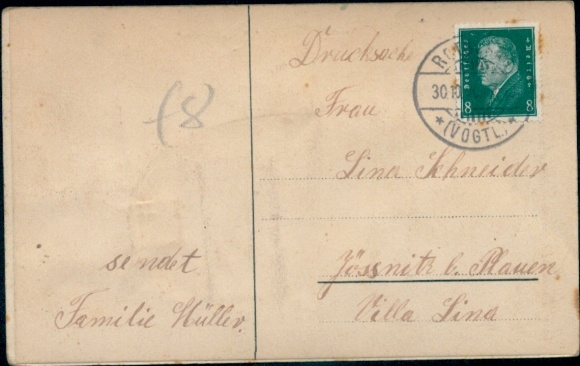 Drucksache
Frau
Lina Schneider
Jössnitz b. Plauen
Villa Lina
sendet
Familie Müller.
(8
Deutsches Reich
8 8
30.10
* (VOGTL.) *